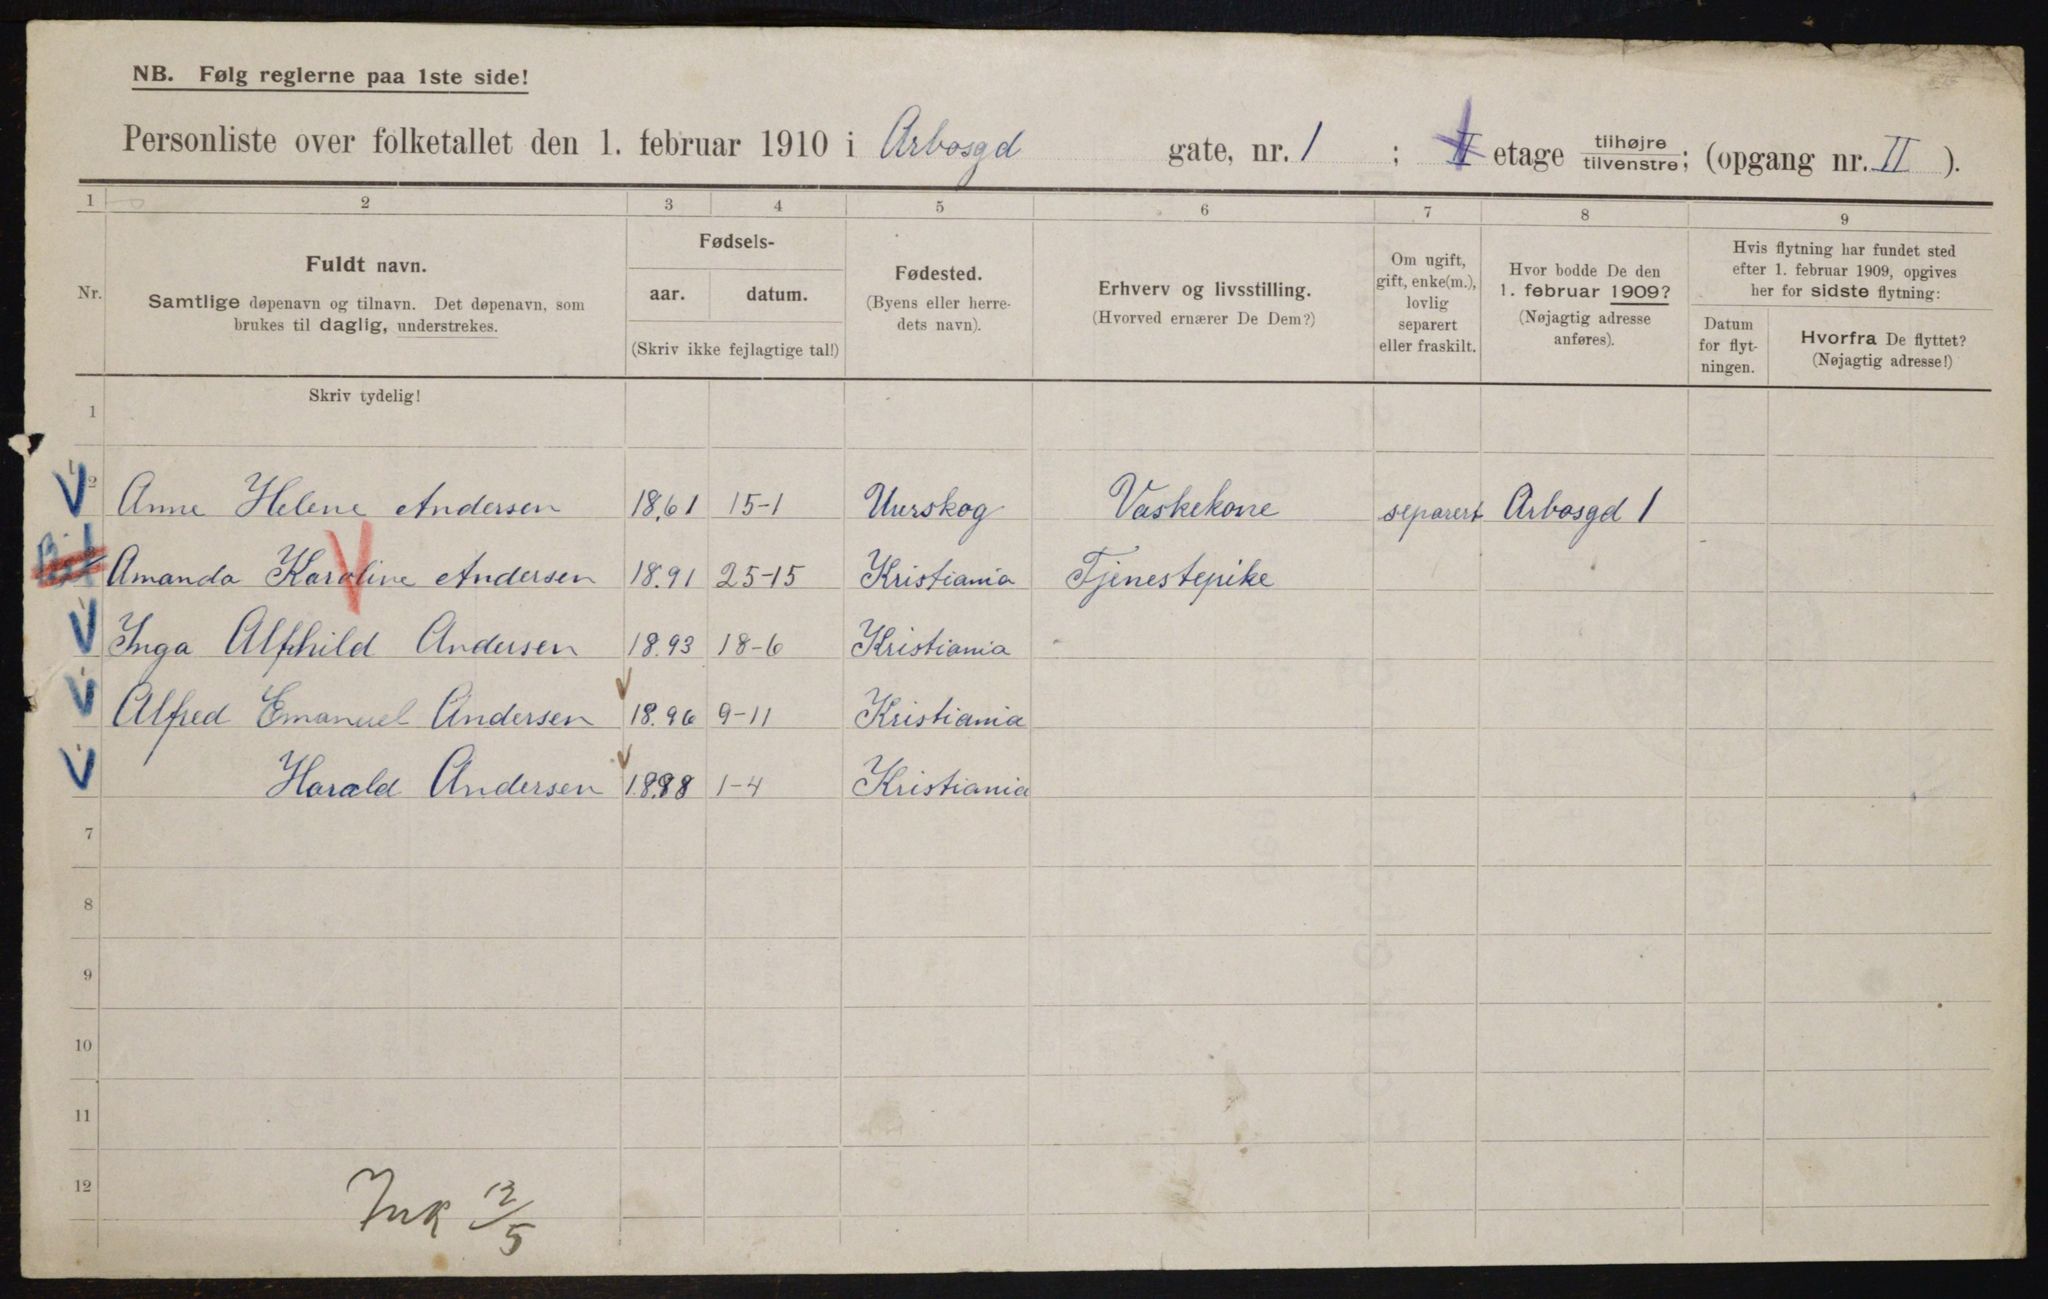 NB. Følg reglerne paa 1ste side!
Personliste over folketallet den 1. februar 1910 i Arbosgd gate, nr. 1 ; II etage tilhøjre tilvenstre; (opgang nr. II ).
1 2 3 4 5 6 7 8 9
Nr.
Fuldt navn.
Samtlige døpenavn og tilnavn. Det døpenavn, som
brukes til daglig, understrekes.
Fødsels-
aar. datum.
(Skriv ikke fejlagtige tal!)
Fødested.
(Byens eller herre-
dets navn).
Erhverv og livsstilling.
(Hvorved ernærer De Dem?)
Om ugift,
gift, enke(m.),
lovlig
separert
eller fraskilt.
Hvor bodde De den
1. februar 1909?
(Nøjagtig adresse
anføres).
Hvis flytning har fundet sted
efter 1. februar 1909, opgives
her for sidste flytning:
Datum
for flyt-
ningen.
Hvorfra De flyttet?
(Nøjagtig adresse!)
Skriv tydelig!
1
2 Anne Helene Andersen 18.61 15-1 Uurskog Vaskekone separert Arbosgd 1
Amanda Karoline Andersen 18.91 25-15 Kristiania Tjenestepike
Inga Alfhild Andersen 18.93 18-6 Kristiania
Alfred Emanuel Andersen 18.96 9-11 Kristiania
Harald Andersen 1898 1-4 Kristiania
7
8
9
10
11
12
Ink 12/5